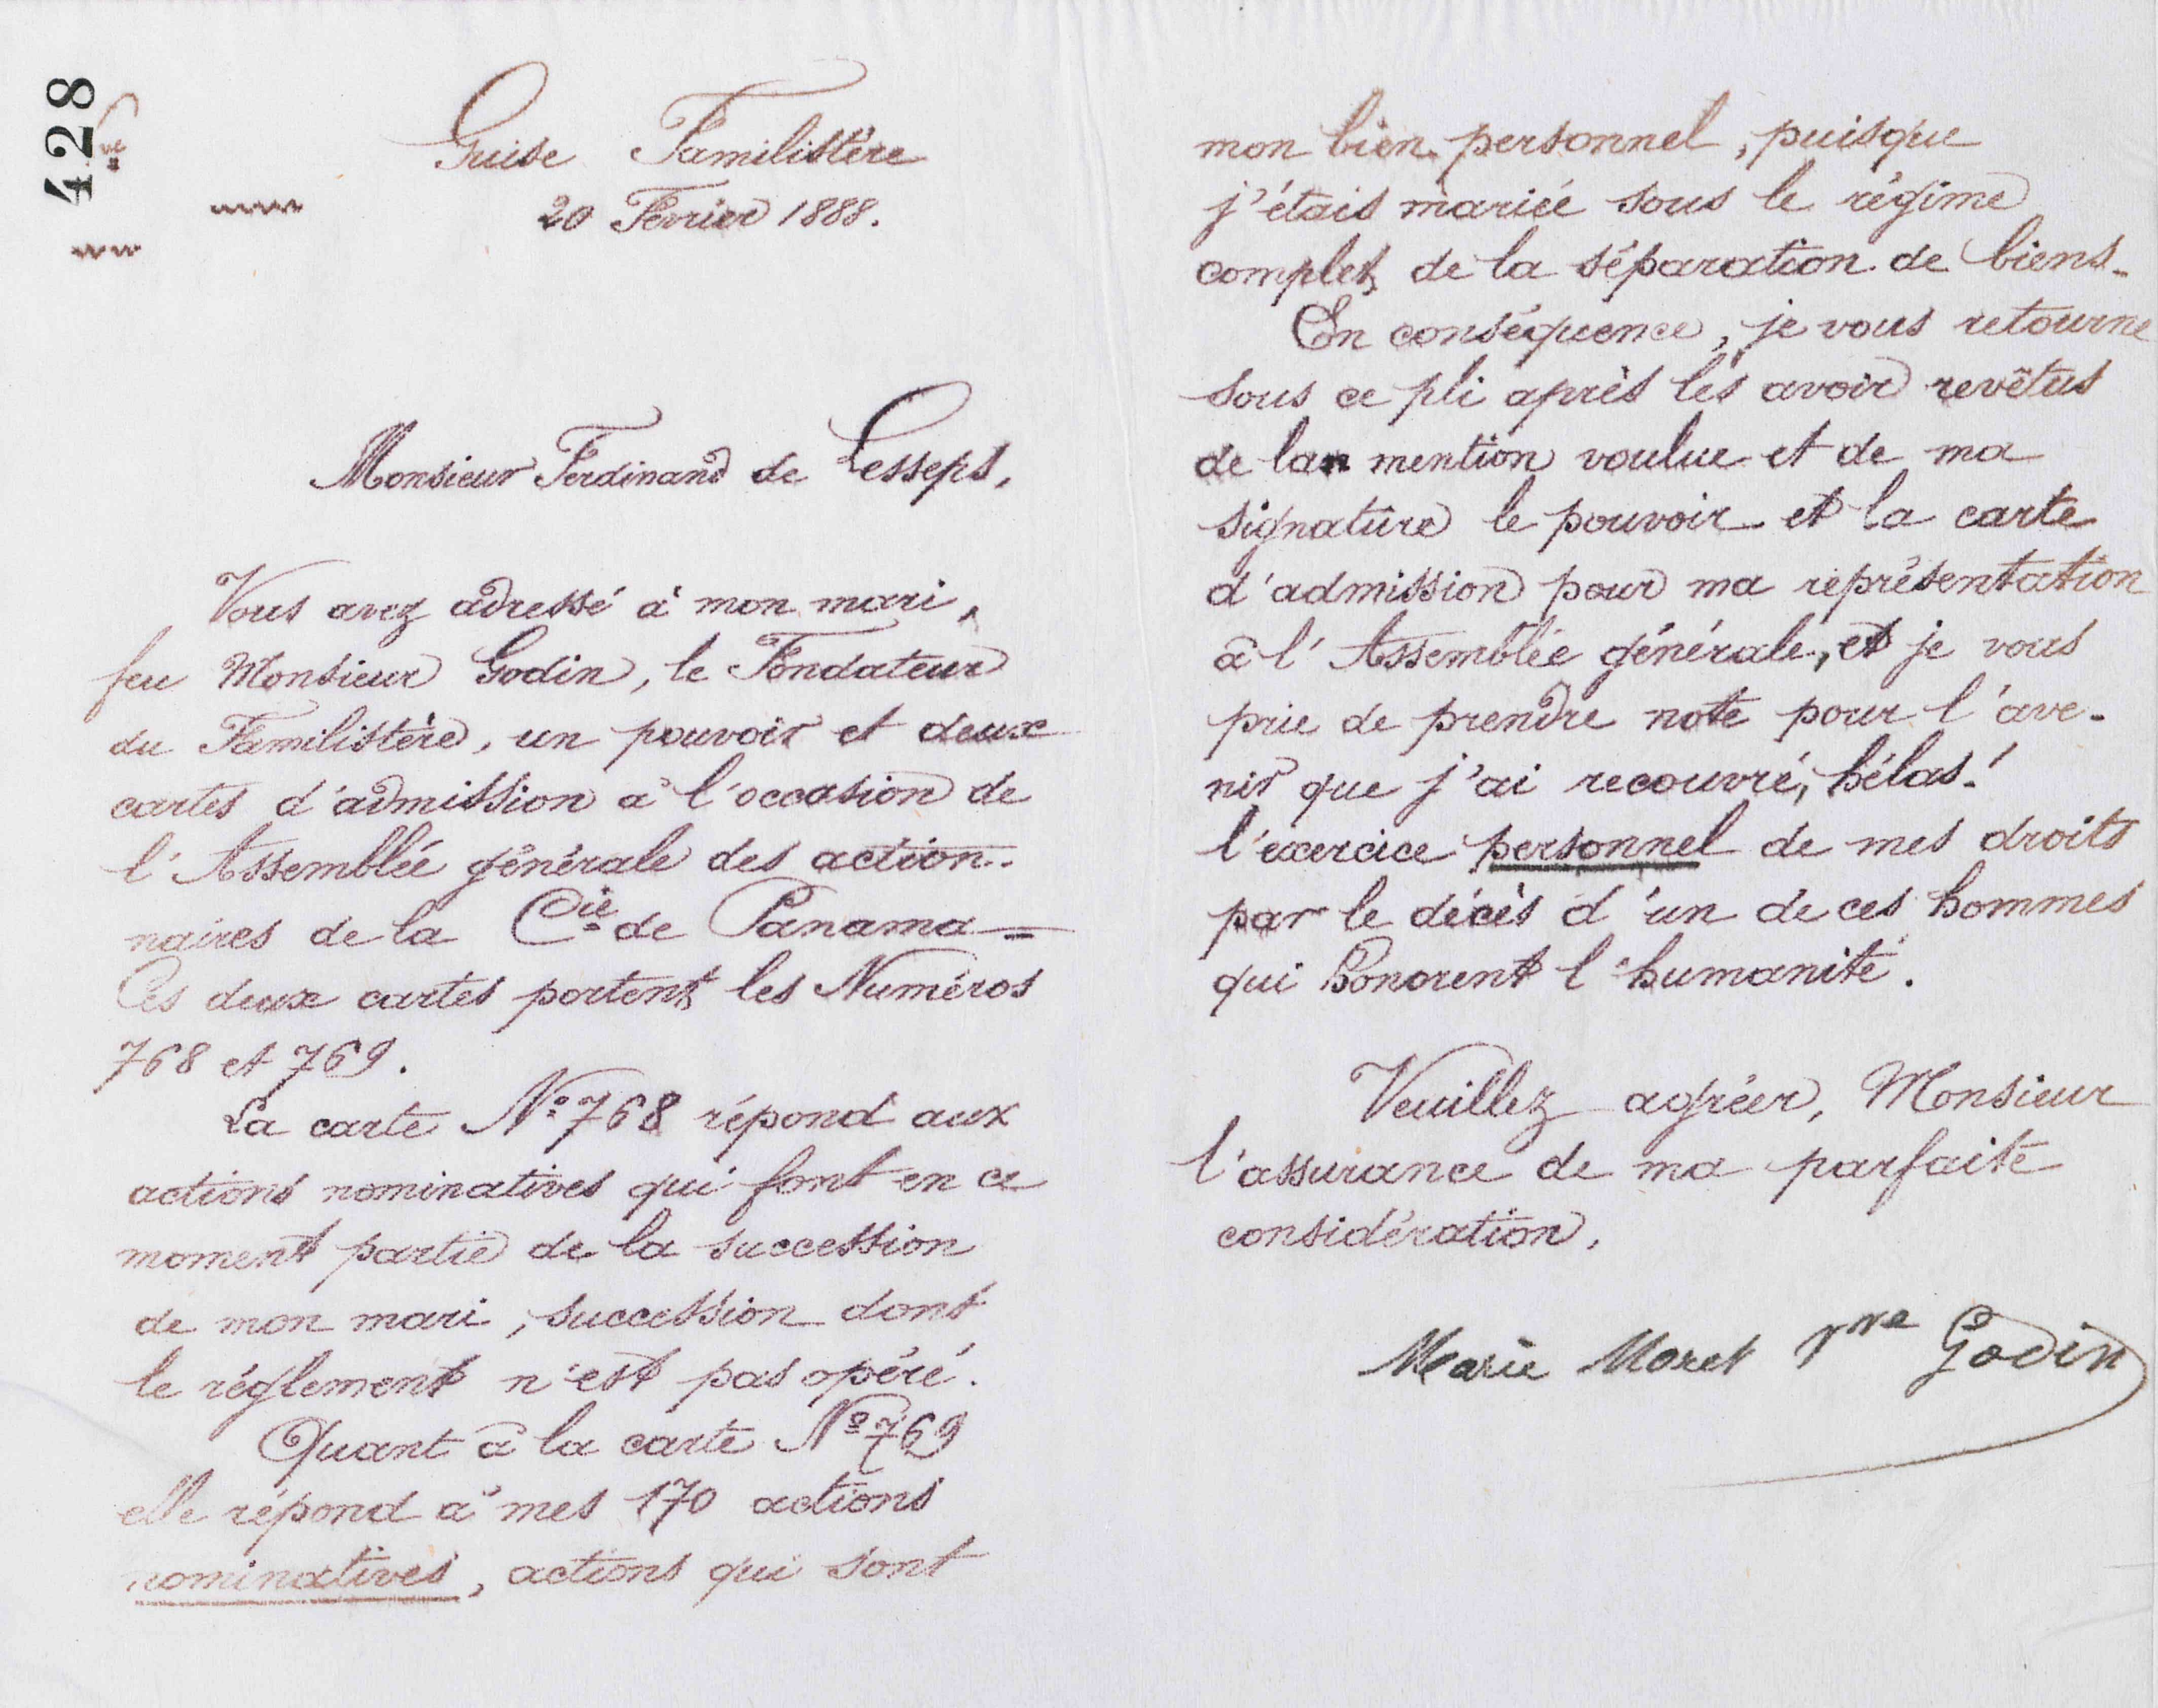 428
Guise Familistère
20 Février 1888.
Monsieur Ferdinand de Lesseps,
Vous avez adressé à mon mari,
feu Monsieur Godin, le Fondateur
du Familistère, un pouvoir et deux
cartes d'admission à l'occasion de
l'Assemblée générale des action-
naires de la Cie de Panama —
Ces deux cartes portent les Numéros
768 et 769.
La carte No 768 répond aux
actions nominatives qui font en ce
moment partie de la succession
de mon mari, succession dont
le réglement n'est pas opéré.
Quant à la carte No 769
elle répond à mes 170 actions
nominatives, actions qui sont
mon bien personnel, puisque
j'étais mariée sous le régime
complet de la séparation de biens.
En conséquence, je vous retourne
sous ce pli après les avoir revêtus
de la mention voulue et de ma
signature le pouvoir et la carte
d'admission pour ma représentation
à l'Assemblée générale, et je vous
prie de prendre note pour l'ave-
nir que j'ai recouvré, hélas!
l'exercice personnel de mes droits
par le décès d'un de ces hommes
qui honorent l'humanité.
Veuillez agréer, Monsieur
l'assurance de ma parfaite
considération,
Marie Moret Vve Godin